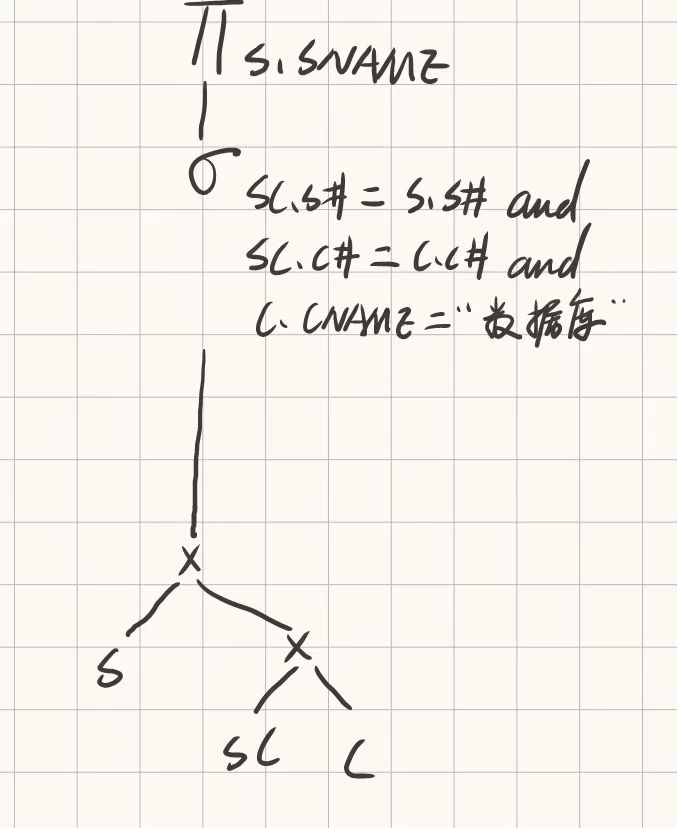 Π S.SNAME
σ SC.S# = S.S# and
SC.C# = C.C# and
C.CNAME = "数据库"
×
S ×
SC C